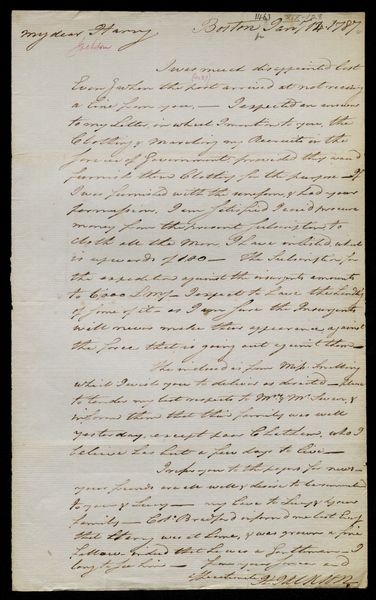 my dear Harry
Boston Jany 14. 1787.
I was much disappointed last
Even'g when the post arrived at not receiving
a line from you,— I expected an answer
to my Letter, in which I mention'd to you, the
Clothing & Marching my Recruits in the
service of Government, provided they would
furnish them Clothing for the purpose— If
I was furnished with the uniform, & had your
permission, I am satisfied I could procure
money from the present Subscription, to
cloth all the Men I have enlisted, which
is upwards of 100— The Subscription for
the expedition against the insurgents amounts
to 6,000 — I expect to have the handling
of some of it— as I am sure the Insurgents
will never make their appearance against
the force that is going out against them—
The inclosed is from Miss
which I wish you to deliver as directed— please
to tender my best respects to Mr & Mrs Swan, &
inform them that their family was well
yesterday, except poor , who I
believe has but a few days to live—
I refer you to the papers for news—
your friends are all well & desire to be remembered
to you & Lucy— my love to Lucy & your
family— Col Bradford informed me last Even'g
that Harry was at home, & was grown a fine
fellow indeed that he was a Gentleman— I
long to see him— I am your friend and
H Jackson